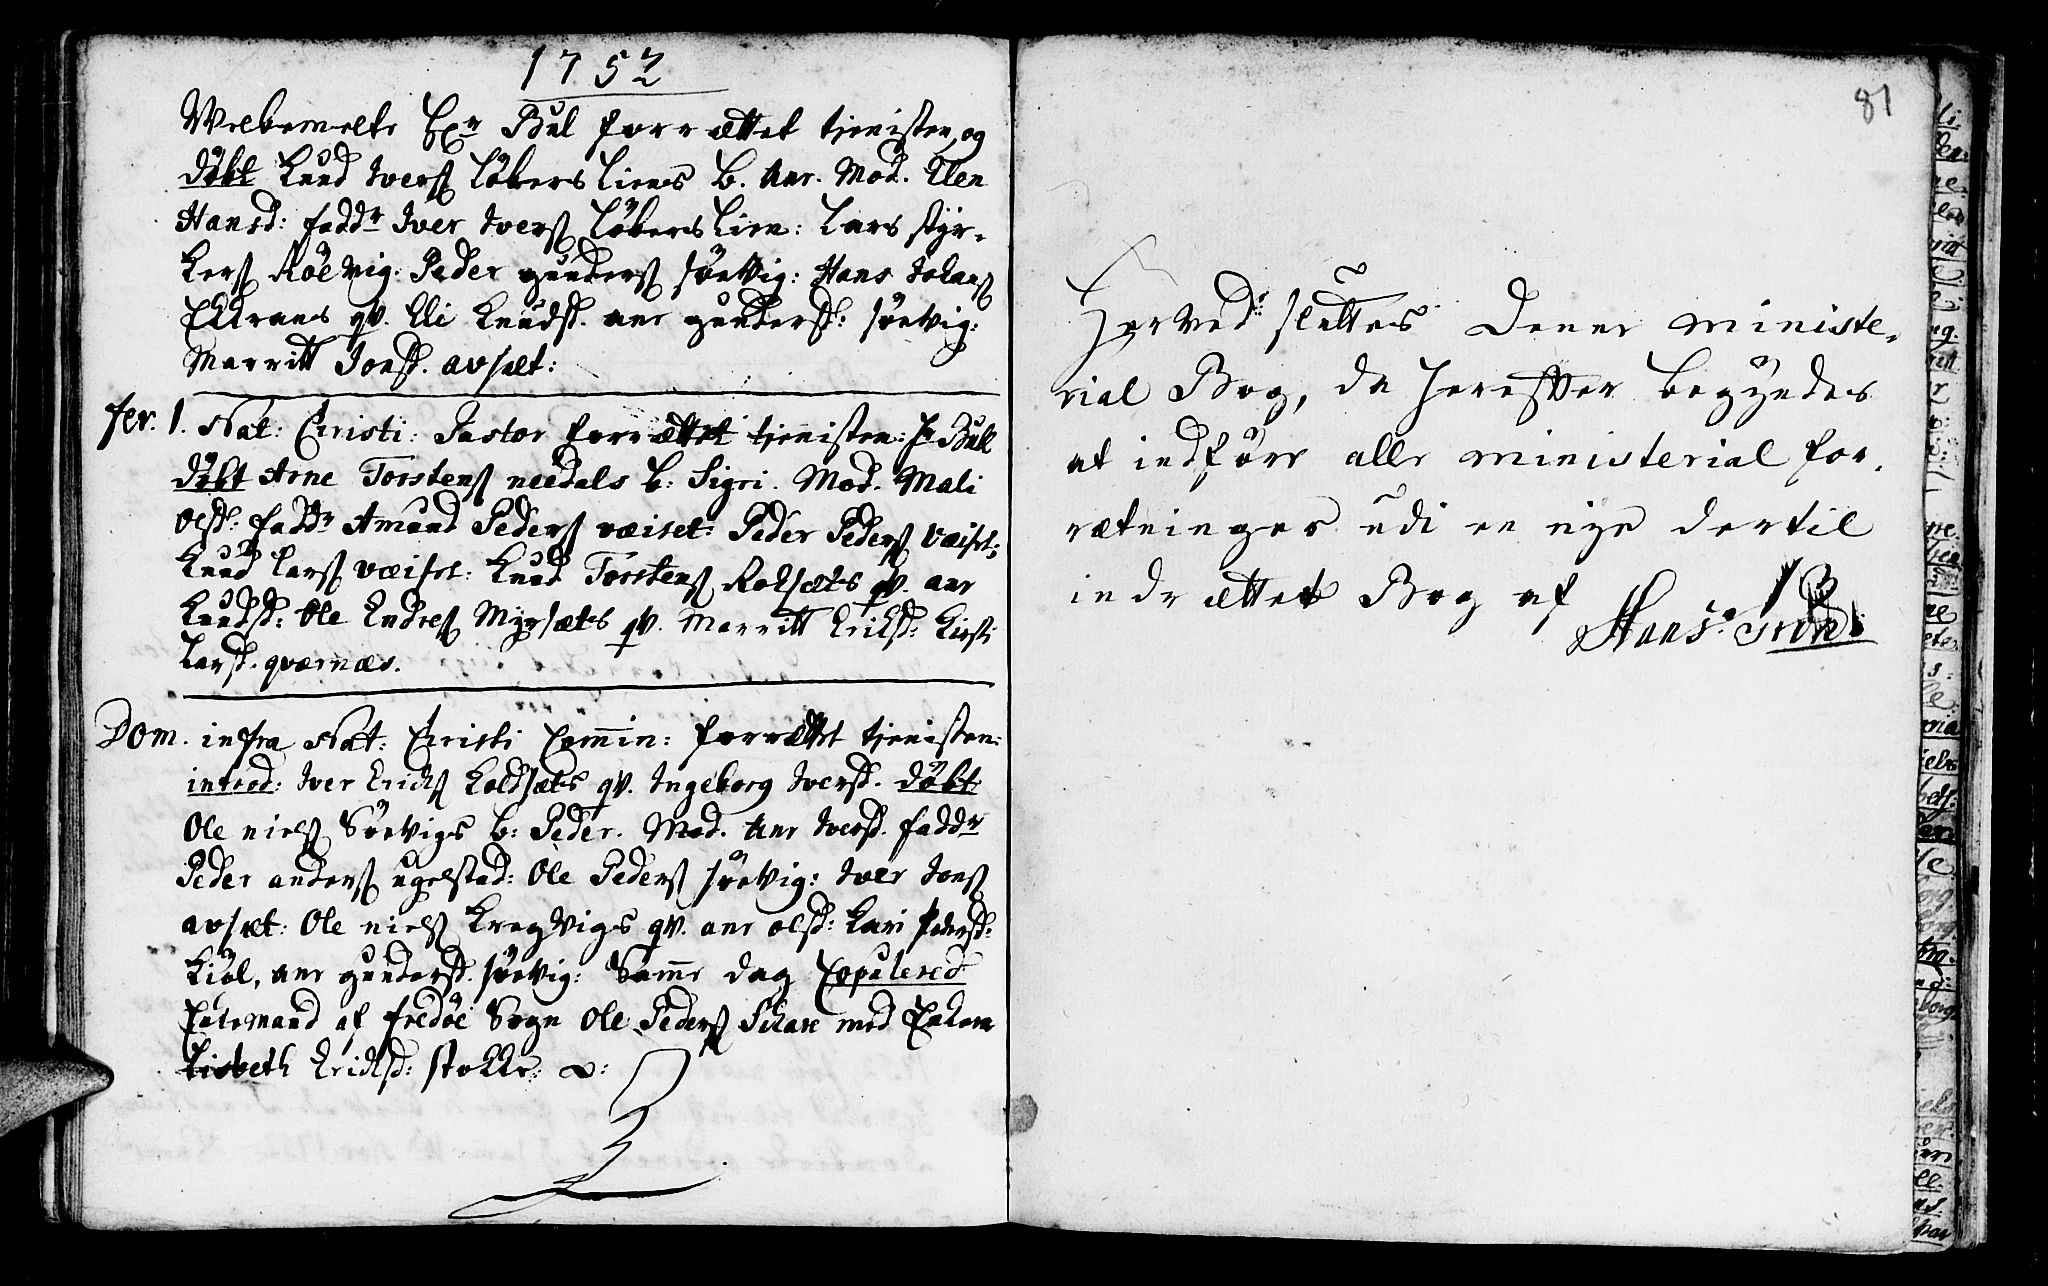 1752
Velbemelte Hr Bul forrættet tjenisten, og
döbt Knud Ivers Löberg Liens b. Ane. Mod. Elen
Hansd: fadd.r Iver Ivers Löbers Lien: Lars Styr-
kers Röevig: Peder gunders söevig: Hans Johans
qv. Eli Knudsd. ane gundersd: söevig:
Marritt Jonsd. avset:
fer. 1. Nat: Christi: Pastor forrættet tjenisten: Hr Bull
döbt Arne Torstens needals b: Sigri. Mod. Mali
Olsd: fadd.r Amund Peders væiset: Peder Peders væiset:
Knud Lars væiset: Knud Torstens Rolsæts qv. ane
Knudsd: Ole Endres Myrsæts qv. Marritt Eriksd: Kirsti
Larsd. qværnæs.
Dom. infra Nat: Christi Comin: forrættet tjenisten:
introd: Iver Ericks Koldsæts qv. Ingeborg Iversd. döbt
Ole niels Söevigs b: Peder. Mod. Ane Iversd. fadd.r
Peder anders ugelstad: Ole Peders söevig: Iver Jons
avset: Ole niels Kregvigs qv. ane olsd: Kari Pedersd:
Kiöl, ane gundersd. söevig: Samme dag Copulered
Enkemand af fredöe Sogn Ole Peders Skare med Enken
Lisbeth Ericksd: stokke:
81
Herved sluttes Denne ministe-
rial Bog, da herefter begyndes
at indföre alle ministerial for-
rætninger udi en nye dertil
indrættet Bog af
Hans Ström